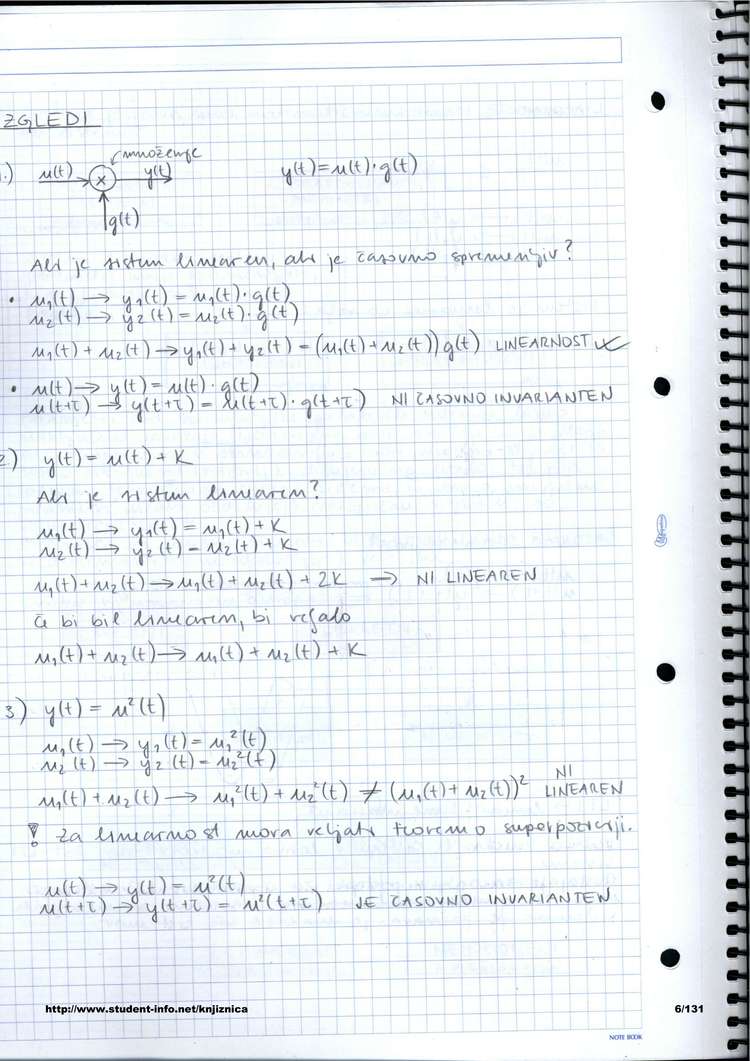 ZGLEDI
množenje
1.) u(t) x y(t) y(t)=u(t)·g(t)
g(t)
Ali je sistem linearen, ali je časovno spremenljiv?
• u₁(t) → y₁(t) = u₁(t)·g(t)
u₂(t) → y₂(t) = u₂(t)·g(t)
u₁(t) + u₂(t) → y₁(t) + y₂(t) = (u₁(t) + u₂(t)) g(t) LINEARNOST ✓
• u(t) → y(t) = u(t)·g(t)
u(t+τ) → y(t+τ) = u(t+τ)·g(t+τ) NI ČASOVNO INVARIANTEN
2) y(t) = u(t) + K
Ali je sistem linearen?
u₁(t) → y₁(t) = u₁(t) + K
u₂(t) → y₂(t) = u₂(t) + K
u₁(t) + u₂(t) → u₁(t) + u₂(t) + 2K → NI LINEAREN
Če bi bil linearen, bi veljalo
u₁(t) + u₂(t) → u₁(t) + u₂(t) + K
3) y(t) = u²(t)
u₁(t) → y₁(t) = u₁²(t)
u₂(t) → y₂(t) = u₂²(t)
u₁(t) + u₂(t) → u₁²(t) + u₂²(t) ≠ (u₁(t) + u₂(t))² NI LINEAREN
! Za linearnost mora veljati teoremo superpoziciji.
u(t) → y(t) = u²(t)
u(t+τ) → y(t+τ) = u²(t+τ) JE ČASOVNO INVARIANTEN
http://www.student-info.net/knjiznica 6/131
NOTE BOOK